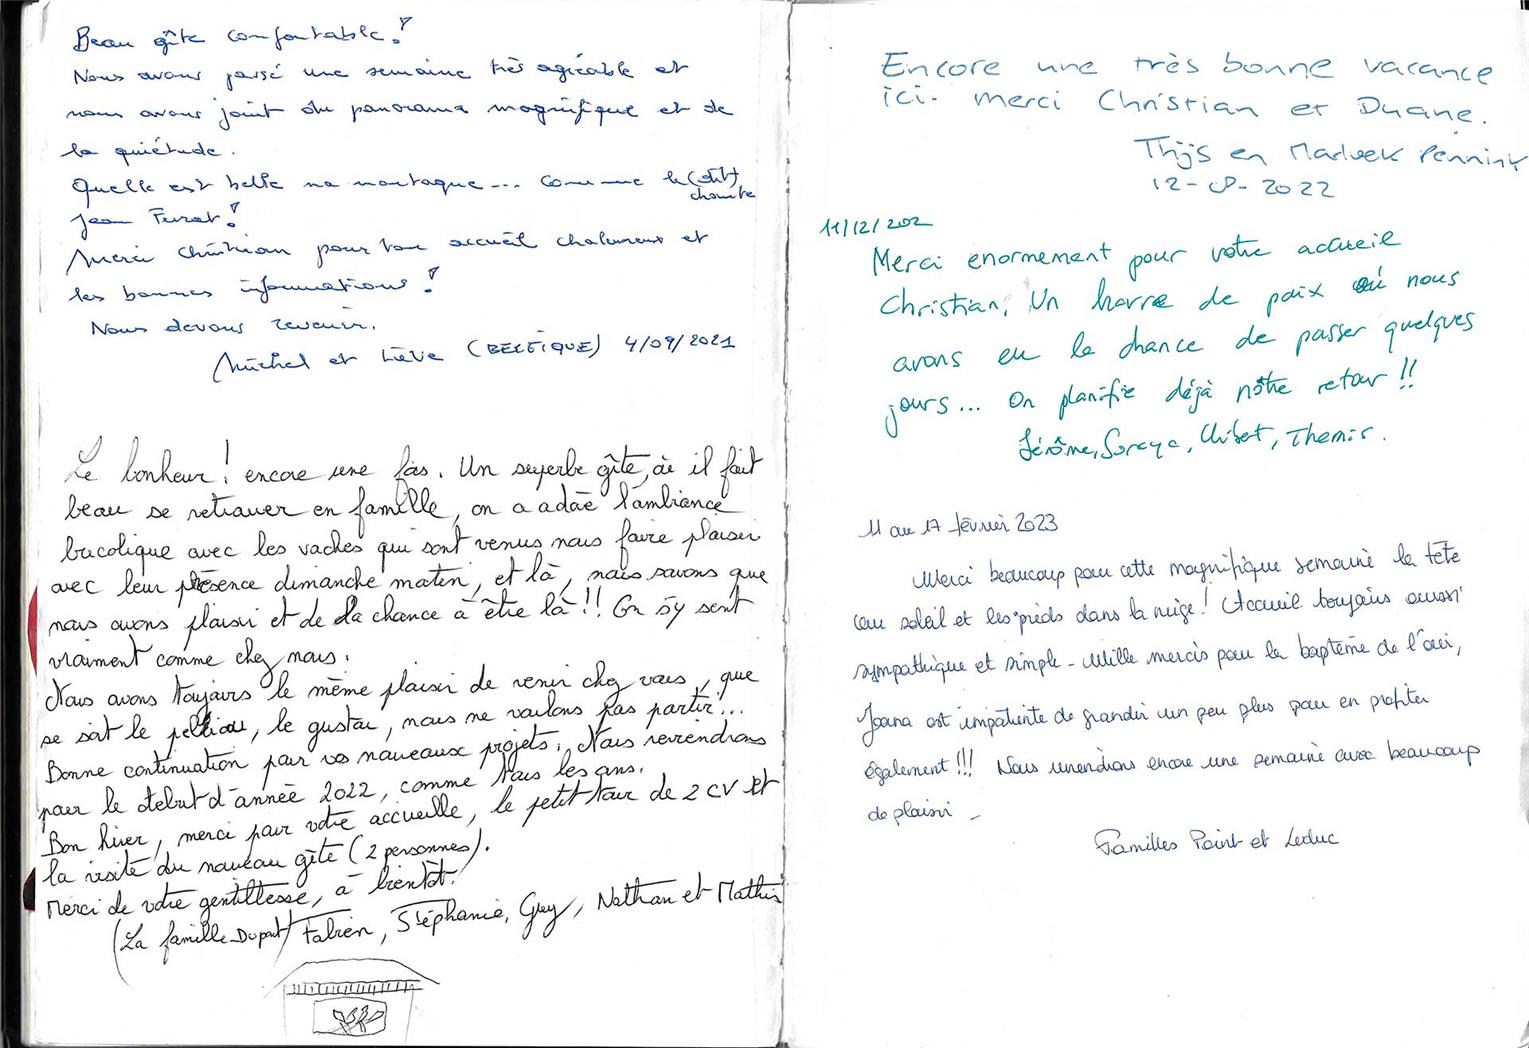 Beau gîte confortable!
Nous avons passé une semaine très agréable et
nous avons joint du panorama magnifique et de
la quiétude.
Quelle est belle na montagne... comme le (dit)
chante
Jean Ferrat!
Merci Christian pour ton accueil chaleureux et
les bonnes informations!
Nous devons revenir.
Michel et Liève (BELGIQUE) 4/09/2021
Le bonheur! encore une fois. Un superbe gîte, où il fait
beau se retrouver en famille, on a adoré l'ambiance
bucolique avec les vaches qui sont venus nous faire plaisir
avec leur présence dimanche matin, et là, nous savons que
nous avons plaisir et de la chance à être là!! On s'y sent
vraiment comme chez nous.
Nous avons toujours le même plaisir de venir chez vous, que
se soit le pelliou, le gustou, nous ne voulons pas partir...
Bonne continuation pour vos nouveaux projets. Nous reviendrons
pour le début d'année 2022, comme tous les ans.
Bon hiver, merci pour votre accueille, le petit tour de 2 CV et
la visite du nouveau gîte (2 personnes).
Merci de votre gentillesse, à bientôt!
(La famille Dupart) Fabien, Stéphanie, Guy, Nathan et Mathis
Encore une très bonne vacance
ici. merci Christian et Duane.
Thijs en Marloek Pennink
12-08-2022
11/12/202
Merci enormement pour votre accueil
Christian, Un havre de paix où nous
avons eu la chance de passer quelques
jours... On planifie déjà nôtre retour!!
Jérôme, Soraya, Themis.
11 au 17 février 2023
Merci beaucoup pour cette magnifique semaine la tête
au soleil et les pieds dans la neige! Accueil toujours aussi
sympathique et simple - Mille mercis pour le baptême de l'ovi,
Joana est impatiente de grandir un peu plus pour en profiter
également!!! Nous reviendrons encore une semaine avec beaucoup
de plaisir -
Familles Point et Leduc